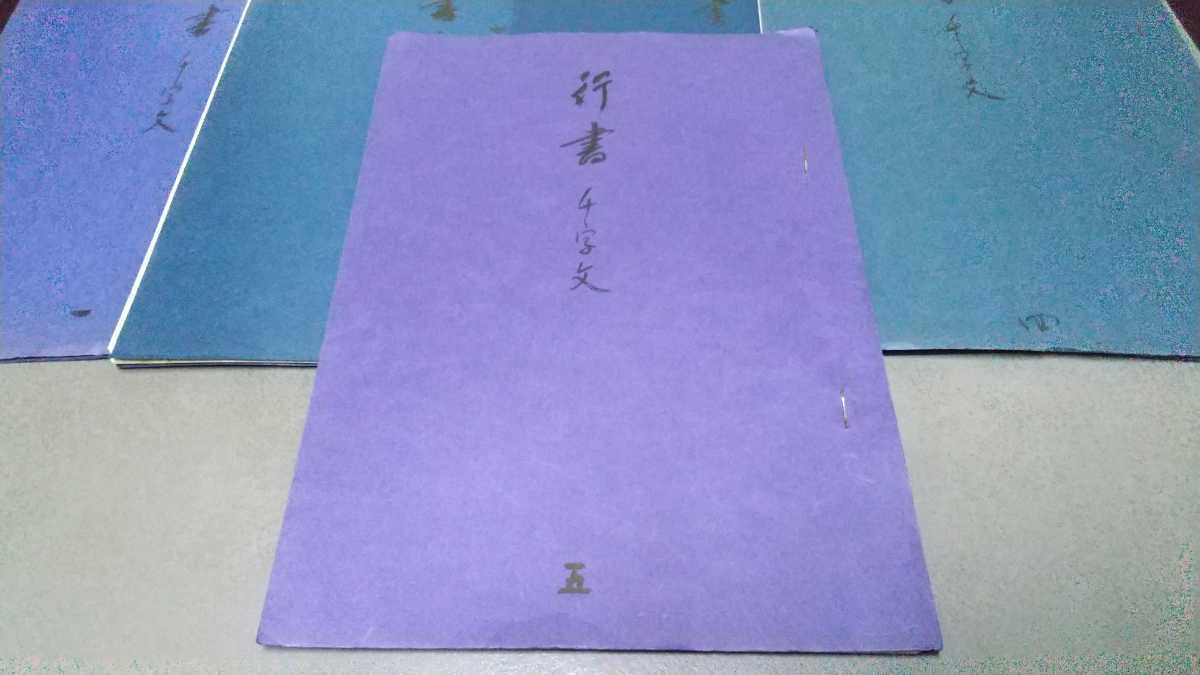 行書 千字文
五
書 千字文
一
千字文
四